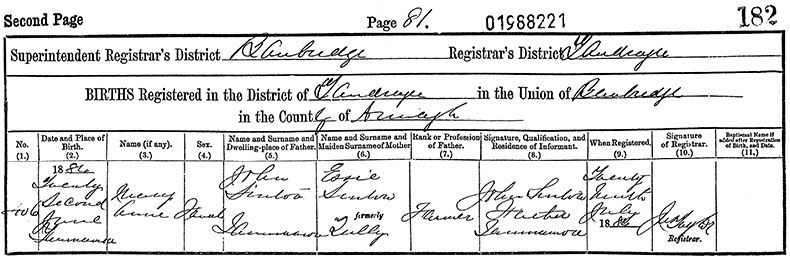 Second Page Page 81. 01988221 182
Superintendent Registrar's District Banbridge Registrar's District Tandragee
BIRTHS Registered in the District of Tandragee in the Union of Banbridge
in the County of Armagh
No. (1.) Date and Place of Birth. (2.) Name (if any). (3.) Sex. (4.) Name and Surname and Dwelling-place of Father. (5.) Name and Surname and Maiden Surname of Mother (6.) Rank or Profession of Father. (7.) Signature, Qualification, and Residence of Informant. (8.) When Registered. (9.) Signature of Registrar. (10.) Baptismal Name if added after Registration of Birth, and Date. (11.)
406
1886 Twenty Second June
Anne
Female
John Sinton
Essie Sinton formerly
Farmer
John Sinton Father
Twenty Ninth July 1886
Registrar.